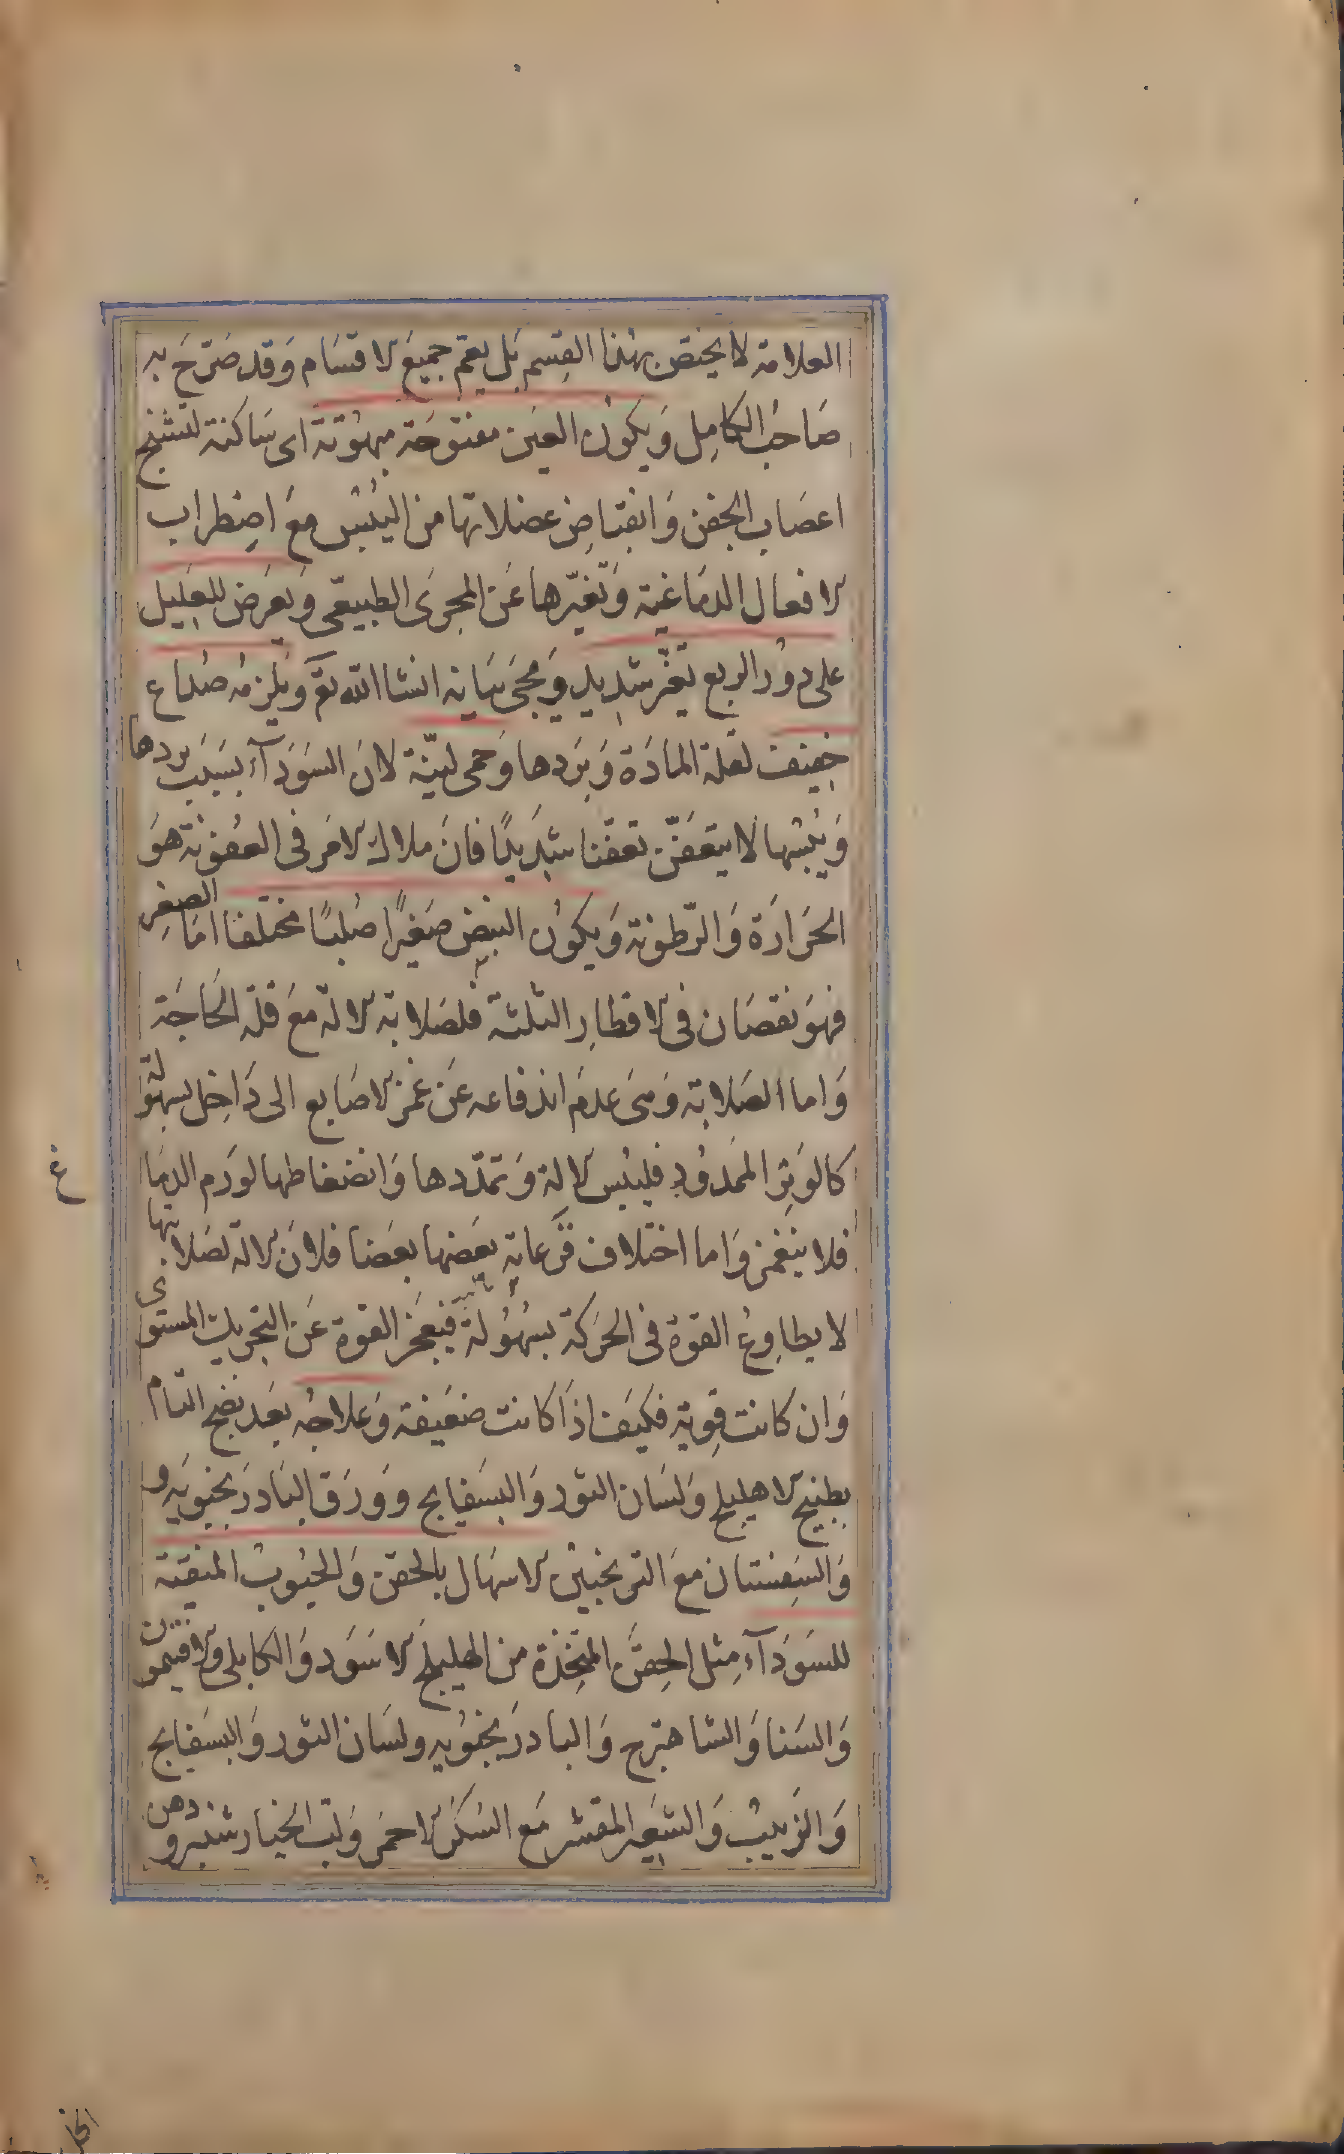 العلامة لا يختص بهذا القسم بل يعم جميع الاقسام وقد صرّح به
صاحب الكامل ويكون العين مفتوحة مبهوتة اى ساكنة لتشنج
اعصاب الجفن وانقباض عضلاتها من اليُبْس مع اضطراب
الافعال الدماغية وتغيّرها عن المجرى الطبيعى ويعرض للعليل
على دور الربع تغيّر شديد ويجىٔ بيانه انشا الله تع ويلزمه صداع
خفيف لقلة المادة وبردها وحمى لينّة لان السودآء بسبب بردها
ويُبْسها لا يتعفّن تعفّنا شديدًا فان ملاك الامر فى العفونة هو
الحرارة والرّطوبة ويكون النبض صغيرًا صُلبًا مختلفا اما الصغر
فهو نقصان فى الاقطار الثلثة فلصلابة الالة مع قلة الحاجة
واما الصلابة وهى عدم اندفاعه عن غمز الاصابع الى داخل بسهولة
كالوتر الممدود فليُبْس الالة وتمدّدها وانضغاطها لورم الدما
غ
فلا ينغمز واما اختلاف قرعاته بعضها بعضا فلان الالة لصلابتها
لا يطاوع القوة فى الحركة بسهُولة فيعجز القوة عن التحريك المستوى
وان كانت قوية فكيف اذا كانت ضعيفة وعلاجه بعد نضج التام
بطبيخ الاهليلج ولسان الثور والبسفايج وورق البادرنجبويه و
والسفستان مع الترنجبين الاسهال بالحقن والحبوب المنقية
للسودآء مثل الحقن المتخذة من الهليلج الاسود والكابلى والافتيمون
والسنا والشاهترج والبادرنجبويه ولسان الثور والبسفايج
والزبيب والشعير المقشر مع السكر الاحمر ولب الخيارشنبر ودهن
الخل